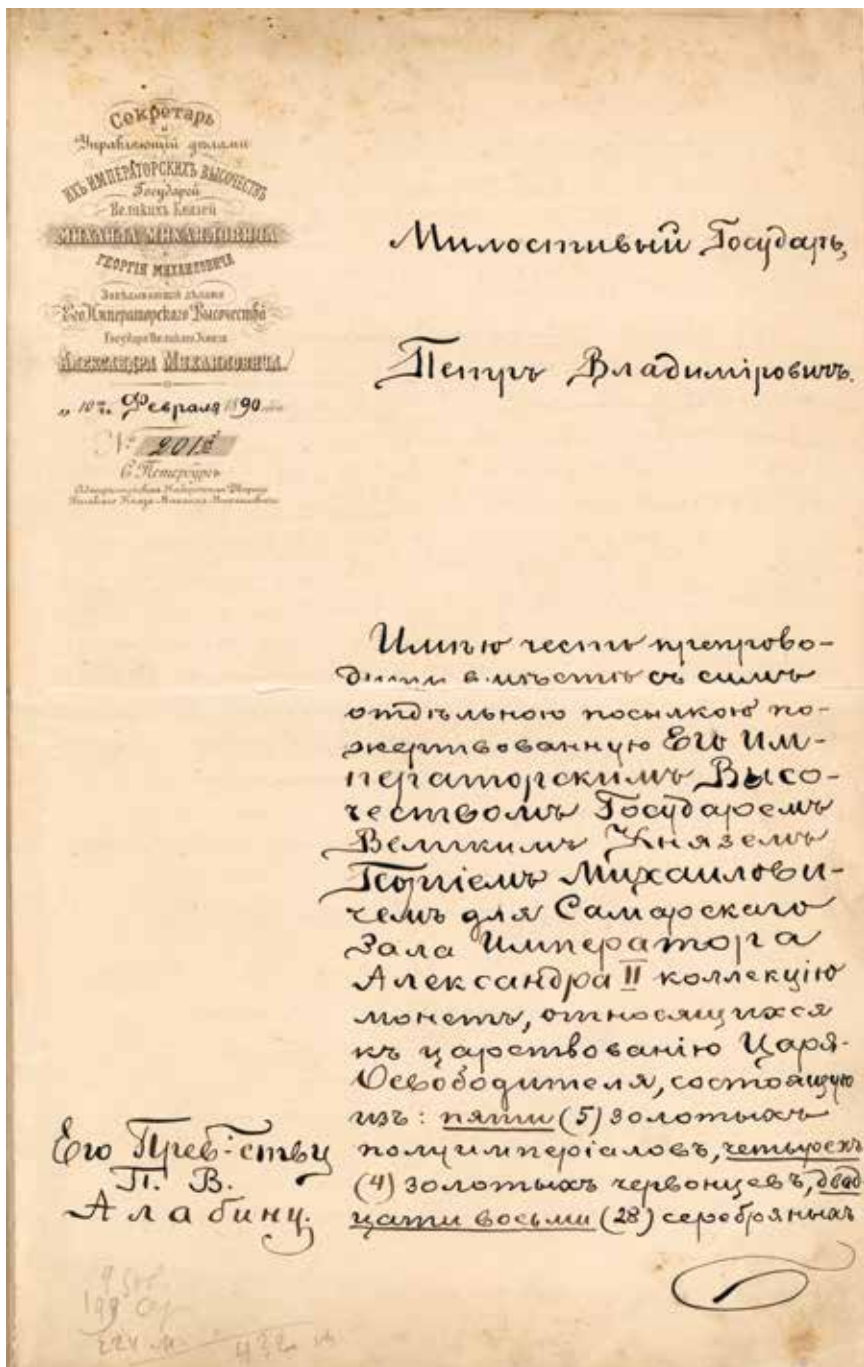 Секретарь
и
Управляющій дѣлами
ИХЪ ИМПЕРАТОРСКИХЪ ВЫСОЧЕСТВЪ
Государей
Великихъ Князей
МИХАИЛА МИХАИЛОВИЧА
и
ГЕОРГІЯ МИХАИЛОВИЧА
Завѣдывающій дѣлами
Его Императорскаго Высочества
Государя Великаго Князя
АЛЕКСАНДРА МИХАИЛОВИЧА.
„ 10 „ Февраля 1890
№ 201
С. Петербургъ
Адмиралтейская Набережная Дворецъ
Великаго Князя Михаила Михаиловича
Милостивый Государь,
Петръ Владиміровичъ.
Имѣю честь препрово-
дить вмѣстѣ съ симъ
отдѣльною посылкою по-
жертвованную Его Им-
ператорскимъ Высо-
чествомъ Государемъ
Великимъ Княземъ
Георгіемъ Михаилови-
чемъ для Самарскаго
Зала Императора
Александра II коллекцію
монетъ, относящихся
къ царствованію Царя-
Освободителя, состоящую
изъ: пяти (5) золотыхъ
полуимперіаловъ, четырехъ
(4) золотыхъ червонцевъ, двад
цати восьми (28) серебряныхъ
Его Прев-ству
П. В.
Алабину.